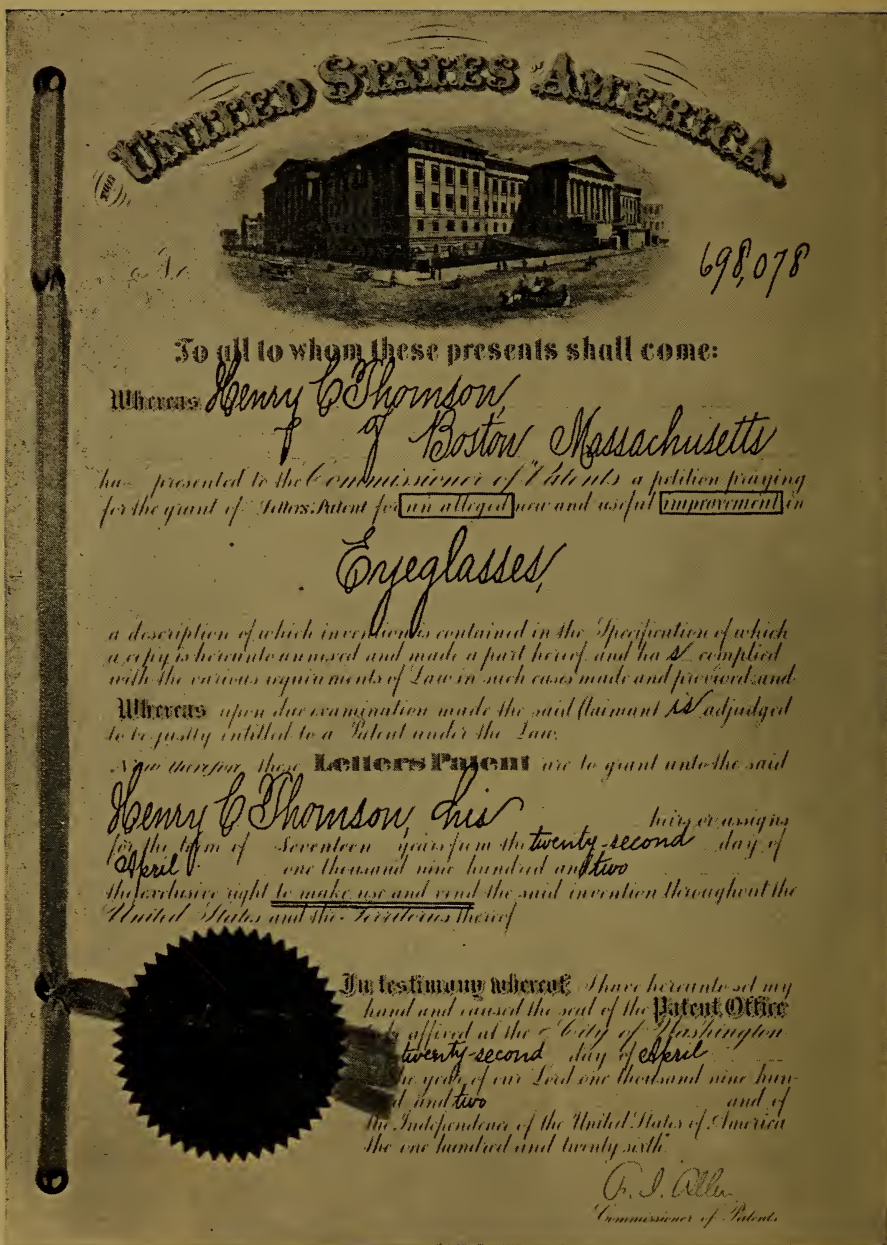 THE UNITED STATES OF AMERICA.
No.
698,078
To all to whom these presents shall come:
Whereas Henry C Thomson,
of Boston Massachusetts
ha presented to the Commissioner of Patents a petition praying
for the grant of Letters Patent for an alleged new and useful improvement in
Eyeglasses,
a description of which invention is contained in the Specification of which
a copy is hereunto annexed and made a part hereof and has complied
with the various requirements of Law in such cases made and provided, and
Whereas upon due examination made the said Claimant is adjudged
to be justly entitled to a Patent under the Law.
Now therefore these Letters Patent are to grant unto the said
Henry C Thomson, his heirs or assigns
for the term of Seventeen years from the twenty-second day of
April one thousand nine hundred and two
the exclusive right to make use and vend the said invention throughout the
United States and the Territories thereof
In testimony whereof I have hereunto set my
hand and caused the seal of the Patent Office
affixed at the City of Washington
twenty-second day of April
the year of our Lord one thousand nine hun-
d and two and of
the Independence of the United States of America
the one hundred and twenty sixth
F. I. Allen
Commissioner of Patents